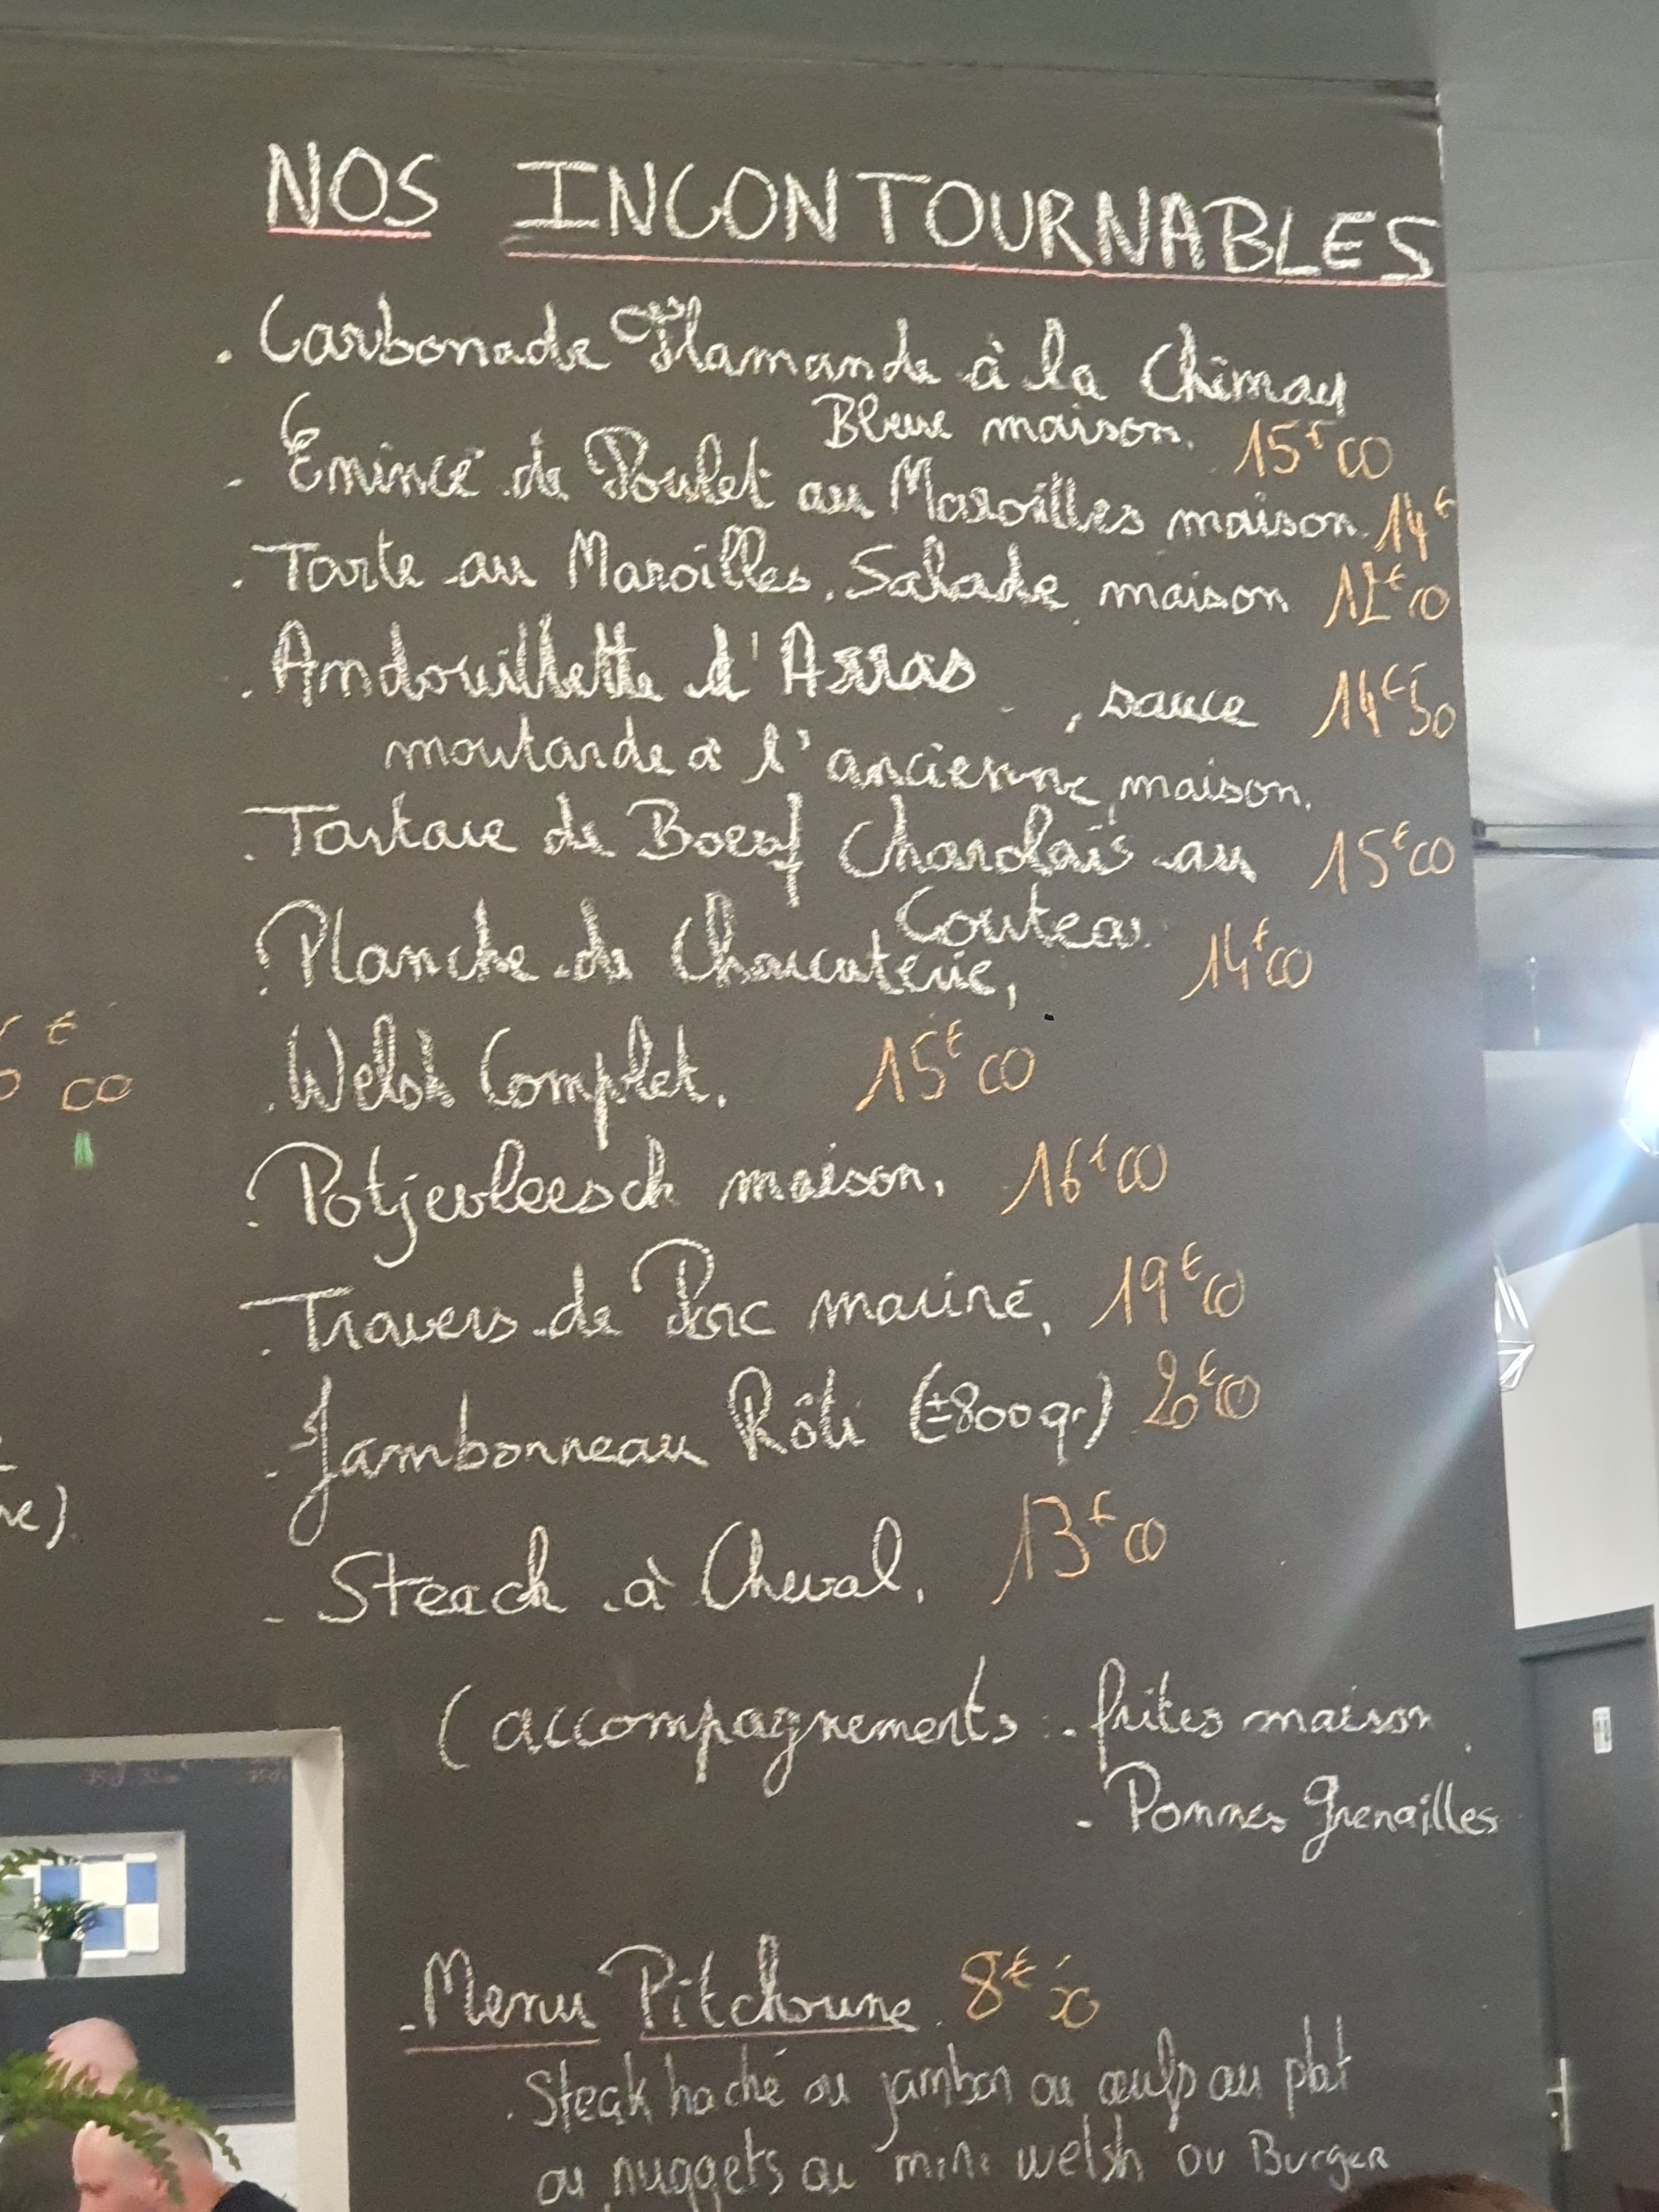 NOS INCONTOURNABLES
. Carbonade Flamande à la Chimay
Bleue maison. 15€00
- Emincé de Poulet au Maroilles maison 14€
. Tarte au Maroilles, Salade maison 12€00
. Andouillette d'Arras , sauce 14€50
moutarde à l'ancienne maison.
. Tartare de Boeuf Charolais au 15€00
Couteau
. Planche de Charcuterie, 14€00
. Welsh Complet. 15€00
. Potjevleesch maison. 16€00
. Travers de Porc mariné, 19€00
- Jambonneau Rôti (±800gr) 20€00
- Steack à Cheval. 13€00
(accompagnements : . frites maison
- Pommes Grenailles
€
00
re)
- Menu Pitchoune 8€50
. Steak haché ou jambon ou œufs au plat
ou nuggets ou mini welsh ou Burger